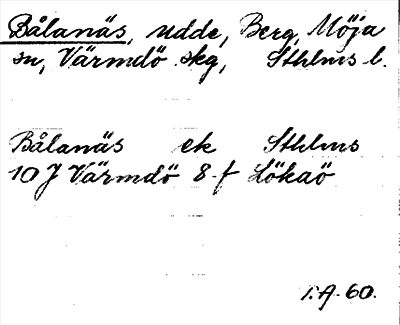 Bålanäs, udde, Berg, Möja
sn, Värmdö skg, Sthlms l.
Bålanäs ek Sthlms
10 J Värmdö 8 f Lökaö
I.A. 60.